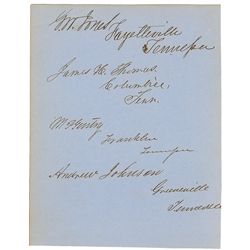 G.W. Jones Fayetteville
Tennessee
James H. Thomas,
Columbia,
Tenn.
M P Gentry
Franklin
Tennessee
Andrew Johnson
Greeneville
Tennessee